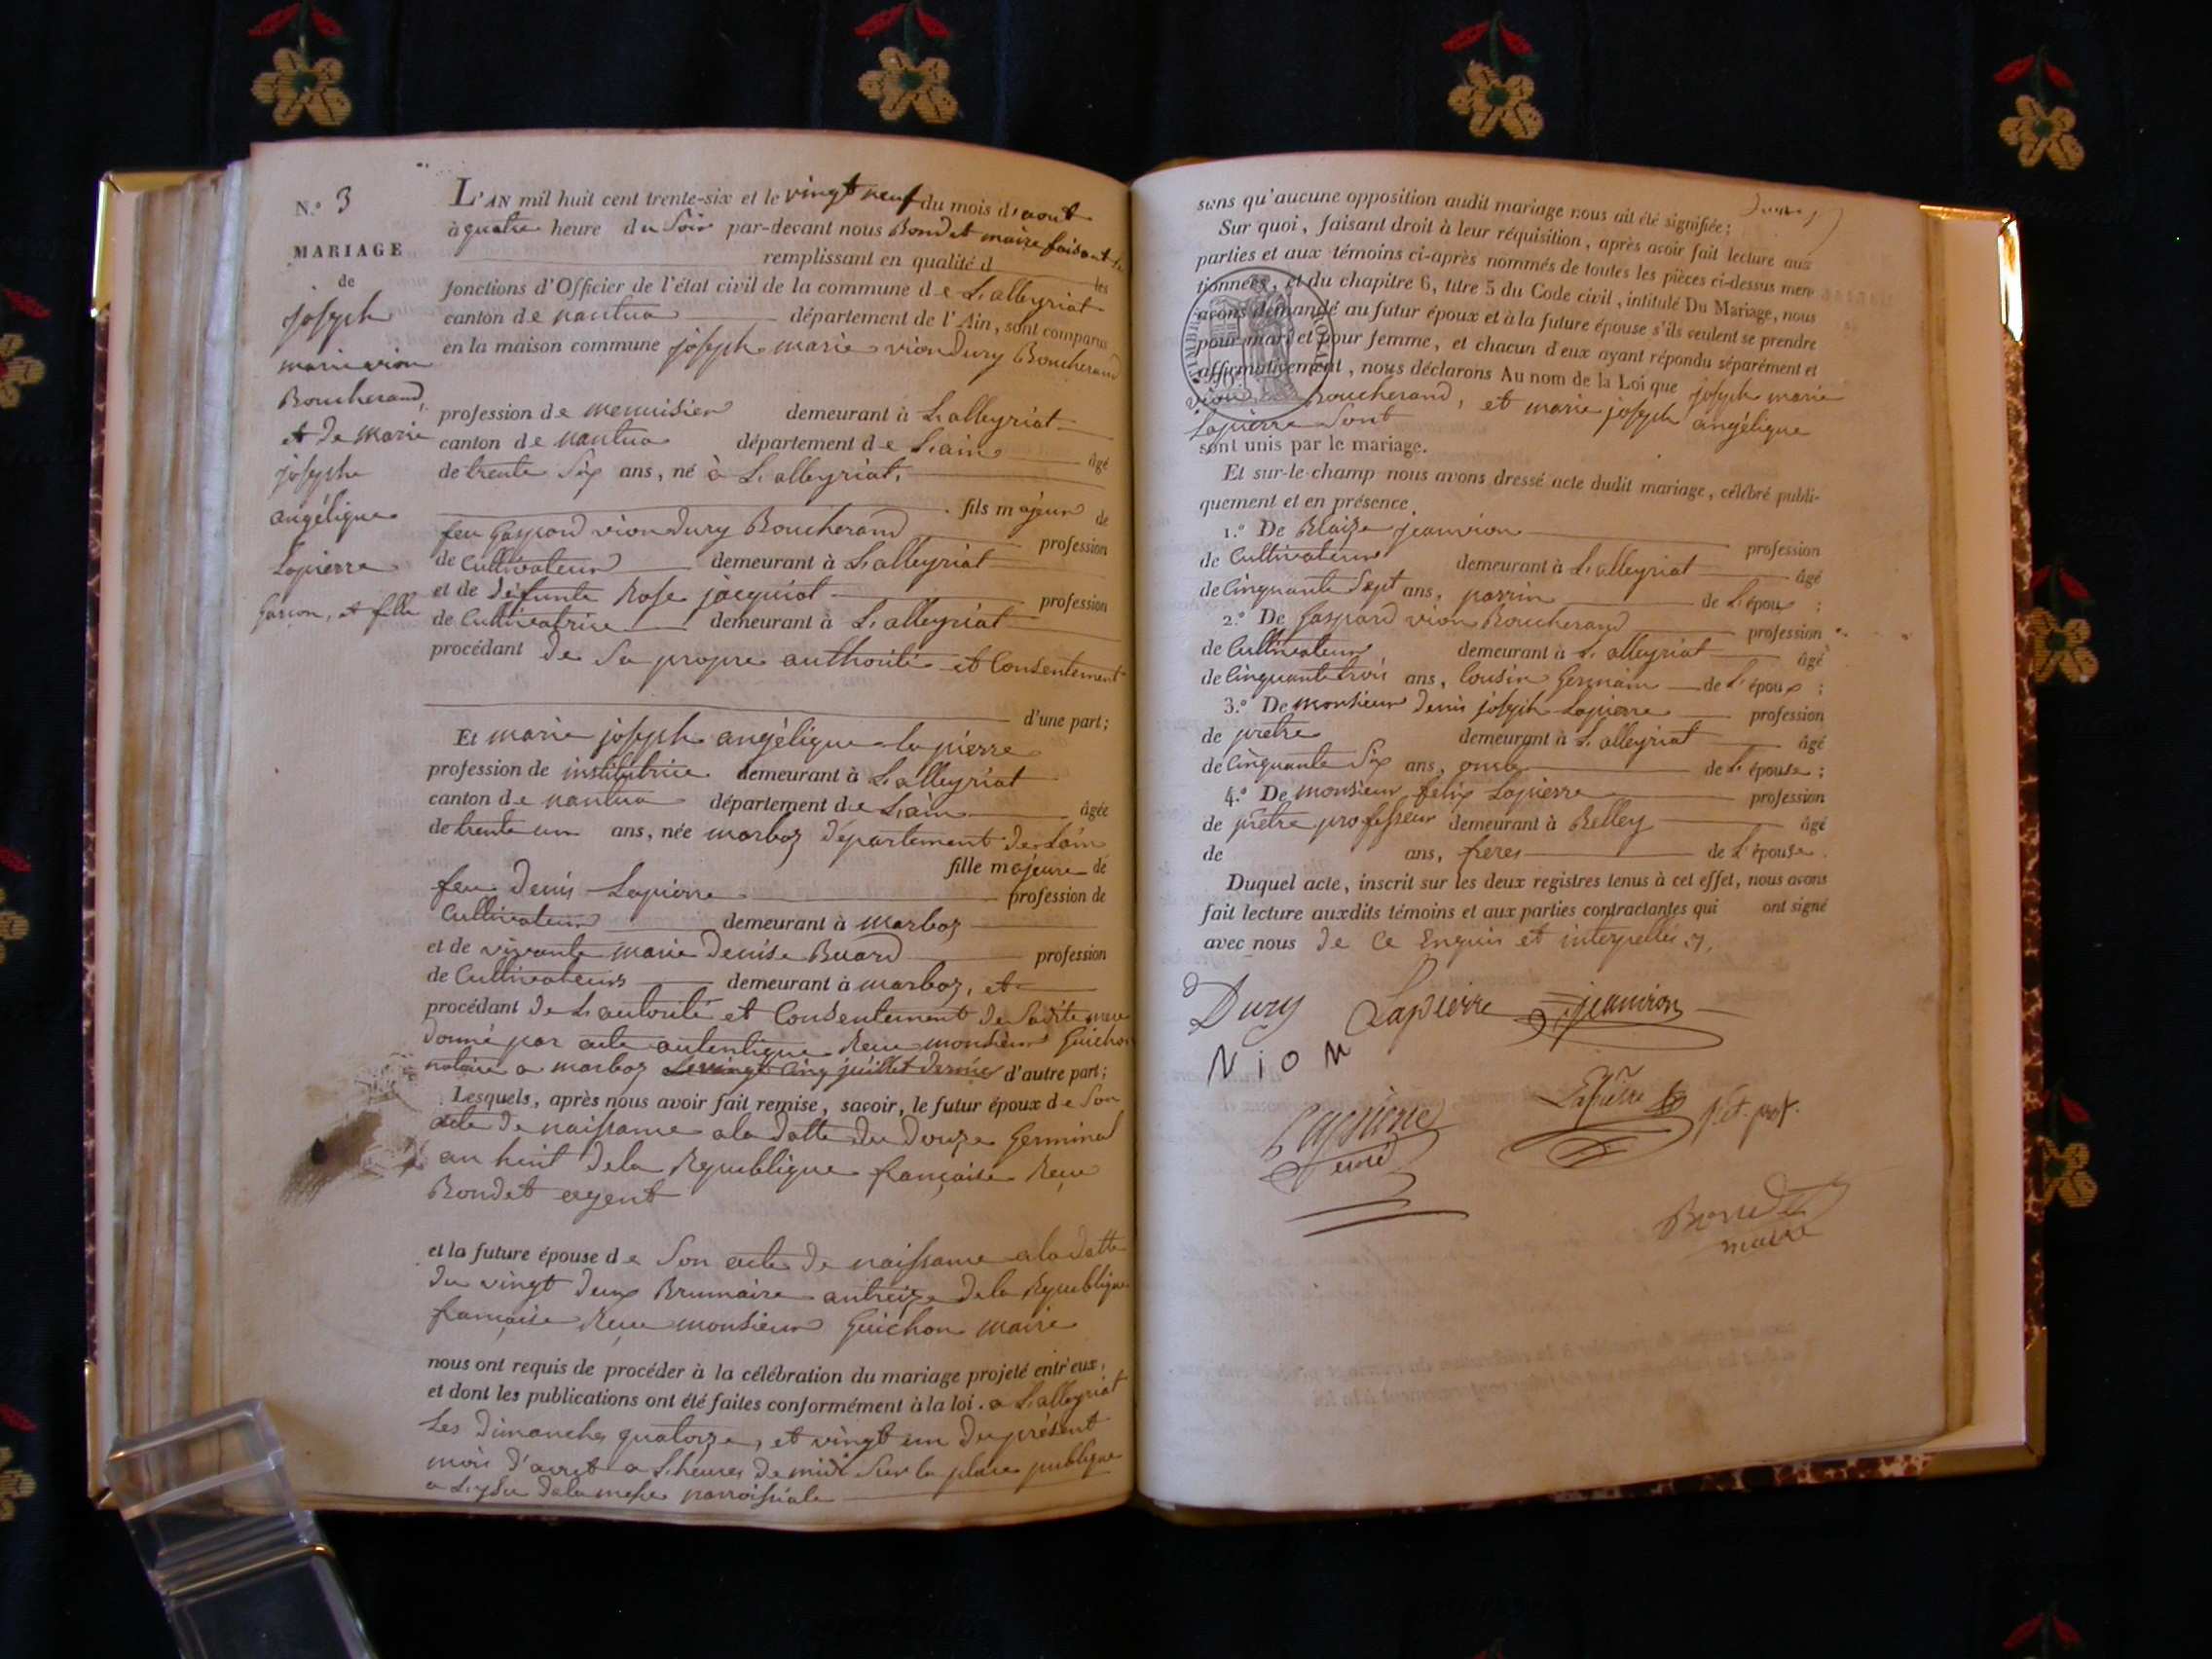 N.° 3
MARIAGE
de
joseph
marie vion
Boucherand,
et de marie
josephe
angélique
Lapierre
Garcon, et fille
L'AN mil huit cent trente-six et le vingt neuf du mois d'aout
à quatre heure du Soir par-devant nous Bondet maire faisant
remplissant en qualité d les
fonctions d'Officier de l'état civil de la commune de L'alleyriat
canton de nantua département de l'Ain, sont comparus
en la maison commune joseph marie vion Dury Boucherand
profession de menuisier demeurant à L'alleyriat
canton de nantua département de L'ain âgé
de trente Six ans, né à L'alleyriat,
fils majeur de
feu Gaspard vion Dury Boucherand profession
de Cultivateur demeurant à L'alleyriat
et de défunte Rose jacquiot profession
de Cultivatrice demeurant à L'alleyriat
procédant de Sa propre authorité et Consentement
d'une part;
Et marie joseph angélique la pierre
profession de institutrice demeurant à L'alleyriat
canton de nantua département de L'ain âgée
de trente un ans, née marboz département de L'ain
fille majeure de
feu Denis Lapierre profession de
Cultivateur demeurant à marboz
et de vivante marie Denise Buard profession
de Cultivateurs demeurant à marboz, et
procédant de L'autorité et Consentement de Sadite mere
donné par acte autentique Reçu monsieur Guichon
notaire a marboz Le vingt Cinq juillet dernier d'autre part;
Lesquels, après nous avoir fait remise, savoir, le futur époux de Son
acte de naissance a la datte du douze Germinal
an huit de la Republique française Reçu
Bondet agent
et la future épouse de Son acte de naissance a la datte
du vingt deux Brumaire an treize de la Republique
française Reçu monsieur Guichon maire
nous ont requis de procéder à la célébration du mariage projeté entr'eux,
et dont les publications ont été faites conformément à la loi. a L'alleyriat
Les dimanches quatorze, et vingt un du présent
mois d'aout a L'heures de midi Sur la place publique
a L'yssu de la messe parroissiale
sans qu'aucune opposition audit mariage nous ait été signifiée;
Sur quoi, faisant droit à leur réquisition, après avoir fait lecture aux
parties et aux témoins ci-après nommés de toutes les pièces ci-dessus men-
tionnées, et du chapitre 6, titre 5 du Code civil, intitulé Du Mariage, nous
avons demandé au futur époux et à la future épouse s'ils veulent se prendre
pour mari et pour femme, et chacun d'eux ayant répondu séparément et
affirmativement, nous déclarons Au nom de la Loi que joseph marie
vion Boucherand, et marie joseph angélique
Lapierre Sont
sont unis par le mariage.
Et sur-le-champ nous avons dressé acte dudit mariage, célébré publi-
quement et en présence
1.° De Blaize jeanvion profession
de Cultivateur demeurant à L'alleyriat âgé
de Cinquante Sept ans, parrin de L'époux ;
2.° De Gaspard vion Boucherand profession
de Cultivateur demeurant à L'alleyriat âgé
de Cinquante trois ans, Cousin Germain de L'époux ;
3.° De monsieur Denis joseph Lapierre profession
de prètre demeurant à L'alleyriat âgé
de Cinquante Six ans, oncle de L'épouse ;
4.° De monsieur felix Lapierre profession
de prètre professeur demeurant à Belley âgé
de ans, freres de L'épouse.
Duquel acte, inscrit sur les deux registres tenus à cet effet, nous avons
fait lecture auxdits témoins et aux parties contractantes qui ont signé
avec nous de Ce Enquis et interpellés.
Dury Lapierre jeanvion
Vion
Lapierre
Lapierre
Bondet
maire
TIMBRE ROYAL